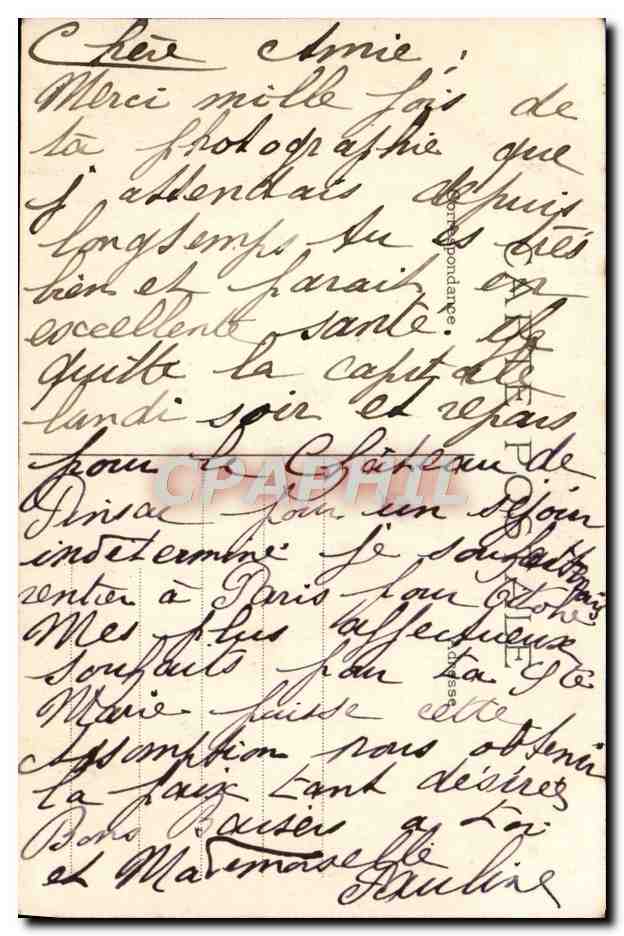 Chère Amie,
Merci mille fois de
ta photographie que
j'attendais depuis
longtemps tu es très
bien et parait en
excellente santé. Je
quitte la capitale
lundi soir et repars
pour le Château de
Pinsac pour un séjour
indéterminé. je
rentrer à Paris pour
Mes plus affectueux
souhaits pour ta Ste
Marie puisse cette
Assomption nous obtenir
la paix tant désirée
Bons Baisers a toi
et Mademoiselle
Pauline
CARTE POSTALE
Correspondance
Adresse
CPAPHIL